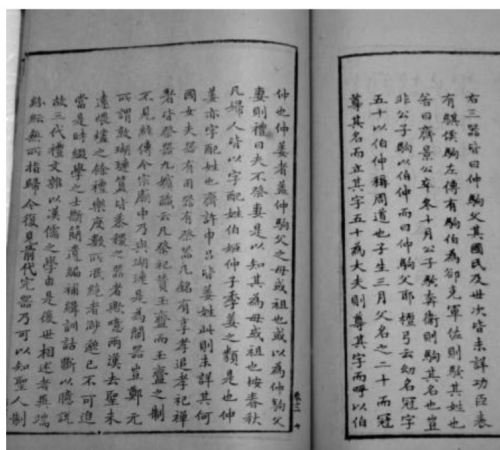 右三器皆曰仲駒父其國氏及世次皆未詳功臣表
有騏侯駒左傳有駒伯為郤克軍佐則駒其姓也
答曰齊景公卒冬十月公子駒奔衛則駒其名也豈
非公子駒以伯仲而曰仲駒父耶檀弓云幼名冠字
五十以伯仲稱周道也子生三月父名之二十而冠
尊其名而立其字五十為大夫則尊其字而呼以伯
仲也仲姜者蓋仲駒父之母或祖也或以為仲駒父
妻則禮曰夫不祭妻是以知其為母或祖也按春秋
凡婦人皆以字配姓伯姬仲子季姜之類是也仲
姜亦字配姓也齊許申呂皆姜姓此則未詳其何
國女夫器有用器有祭器凡銘有享孝追孝祀禪
者皆祭器九嬪職云凡祭祀贊玉齍而玉齍之制
不見於傳今宗廟中乃與瑚璉是為簡器豈鄭元
所謂敦瑚璉簋皆黍稷之器者歟噫兩漢去聖未
遠煨燼之餘禮樂度數所泯絕者漸已不可追
當是時綴學之士斷簡遺編補緝訓詁斷以臆說
故三代禮文雜以漢儒之學由是後世相述者異端
紛紜無所指歸今復見前代完器乃可以知聖人制